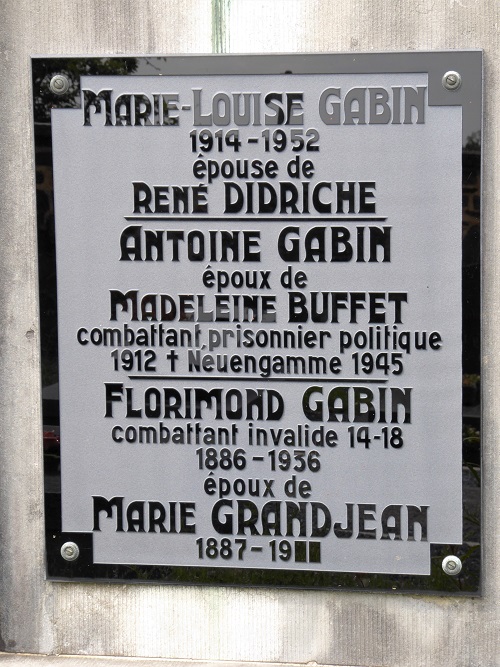 MARIE-LOUISE GABIN
1914-1952
épouse de
RENÉ DIDRICHE
ANTOINE GABIN
époux de
MADELEINE BUFFET
combattant, prisonnier politique
1912 † Néuengamme 1945
FLORIMOND GABIN
combattant invalide 14-18
1886-1936
époux de
MARIE GRANDJEAN
1887-19